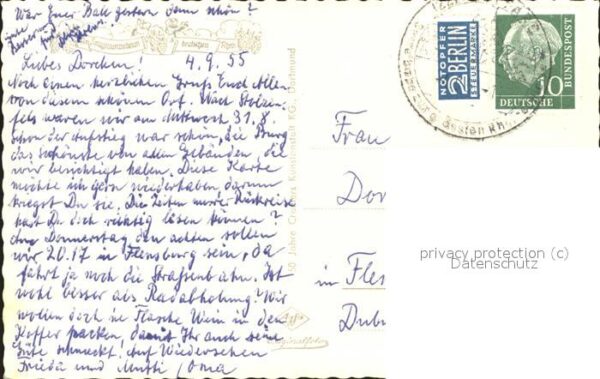 War Euer Ball gestern denn schön?
4.9.55
Liebes Dorchen!
Noch einen herzlichen Gruß Euch Allen
von diesem schönen Ort. Nach Stolzen-
fels waren wir am Mittwoch 31.8.
schon der Aufstieg war schön, die Burg
das schönste von allen Gebäuden, die
wir besichtigt haben. Diese Karte
möchte ich gern wiederhaben, darum
kriegst Du sie. Die Zeiten unsrer Rückreise
hast Du doch richtig lesen können?
Donnerstag den achten sollen
wir 20.17 in Flensburg sein, da
fährt ja noch die Straßenbahn. Ist
wohl besser als Radabholung? Wir
wollen doch ne Flasche Wein in den
Koffer packen, damit Ihr auch seine
Güte schmeckt! Auf Wiedersehen
Frieda und Mutti / Oma
Jahre Cramers Kunstanstalt KG, Dortmund
Frau
Dor
in Fles
Dub
NOTOPFER
2 BERLIN
STEUERMARKE
10
DEUTSCHE
BUNDESPOST
privacy protection (c)
Datenschutz